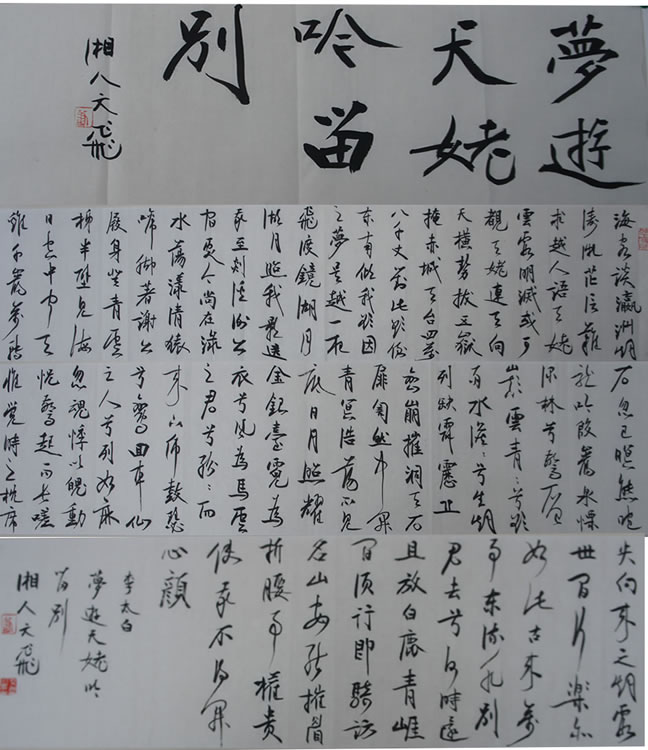 夢遊
天姥
吟留
別
湘人文飛
海客談瀛洲煙
濤微茫信難
求越人語天姥
雲霞明滅或可
覩天姥連天向
天橫勢拔五嶽
掩赤城天台四萬
八千丈對此欲倒
東南傾我欲因
之夢吳越一夜
飛渡鏡湖月
湖月照我影送
我至剡溪謝公
宿處今尚在淥
水蕩漾清猿
啼腳著謝公
屐身登青雲
梯半壁見海
日空中聞天
雞千巖萬轉
石忽已暝熊咆
龍吟殷巖泉慄
深林兮驚層
巔雲青青兮欲
雨水澹澹兮生煙
列缺霹靂丘
巒崩摧洞天石
扉訇然中開
青冥浩蕩不見
底日月照耀
金銀臺霓為
衣兮風為馬雲
之君兮紛紛而
來下虎鼓瑟
兮鸞回車仙
之人兮列如麻
忽魂悸以魄動
恍驚起而長嗟
惟覺時之枕席
失向來之煙霞
世間行樂亦
如此古來萬
事東流水別
君去兮何時還
且放白鹿青崖
間須行即騎訪
名山安能摧眉
折腰事權貴
使我不得開
心顏
李太白
夢遊天姥吟
留別
湘人文飛